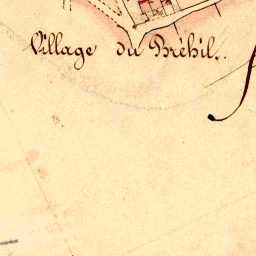 Village du Bréhil.